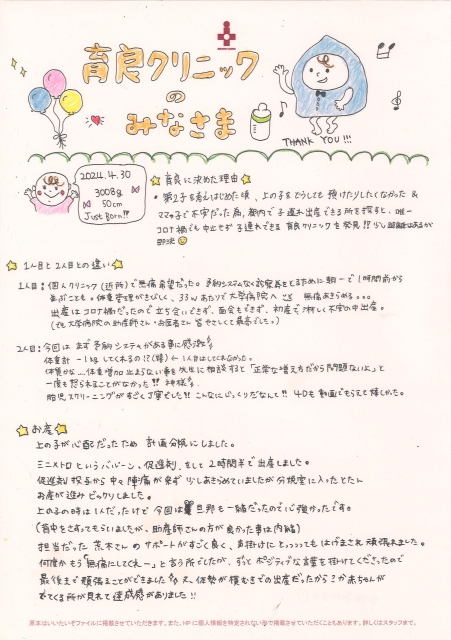 育良クリニック
の
みなさま
THANK YOU!!!
2024.4.30
3008g
50cm
Just Born!!
育良に決めた理由
・第2子を考えはじめた頃、上の子をどうしても預けたりしたくなかった &
ママっ子で不安だった為、都内で子連れ出産できる所を探すと、唯一
コロナ禍でも中止せず子連れできる育良クリニックを発見!! 少し距離はあるが
即決
1人目と2人目との違い
1人目:個人クリニック(近所)で無痛希望だった。予約システムなく診察券をとるために朝一で1時間前から
並ぶことも。体重管理がきびしく、33wあたりで大学病院へ 無痛あきらめる。。。
出産はコロナ禍だったので立ち合いできず、面会もできず、初産で淋しく不安の中出産。
(でも大学病院の助産師さん・お医者さん皆やさしくて最高でした。)
2人目:今回はまず予約システムがある事に感激
体重計 -1kgしてくれるの!?(嬉) ← 1人目はしてくれなかった。
体質かな…体重増加止まらない事を先生に相談すると「正常な増え方だから問題ないよ」と
一度も怒られることがなかった!! 神様
胎児スクリーニングがすごく丁寧でした!! こんなにじっくりだなんて!! 4Dも動画でもらえて嬉しかった。
お産
上の子が心配だったため 計画分娩にしました。
ミニメトロというバルーン、促進剤、そして2時間半で出産しました。
促進剤投与から中々陣痛が来ず 少しあきらめていましたが 分娩室に入ったとたん
お産が進みビックリしました。
上の子の時は1人だったけど今回は旦那も一緒だったので心強かったです。
(背中をさすってもらいましたが、助産師さんの方が良かった事は内緒)
担当だった 荒木さんのサポートがすごく良く、声掛けにとっっっってもはげまされ頑張れました。
何度かもう「無痛にしてくれー」と言う所でしたが、ずっとポジティブな言葉を掛けてくださったので
最後まで頑張ることができました 又、体勢が横むきでの出産だったから?か赤ちゃんが
でてくる所が見れて達成感がありました!!
原本はいいたいそファイルに掲載させていただきます。また、HPに個人情報を特定されない形で掲載させていただくこともあります。詳しくはスタッフまで。